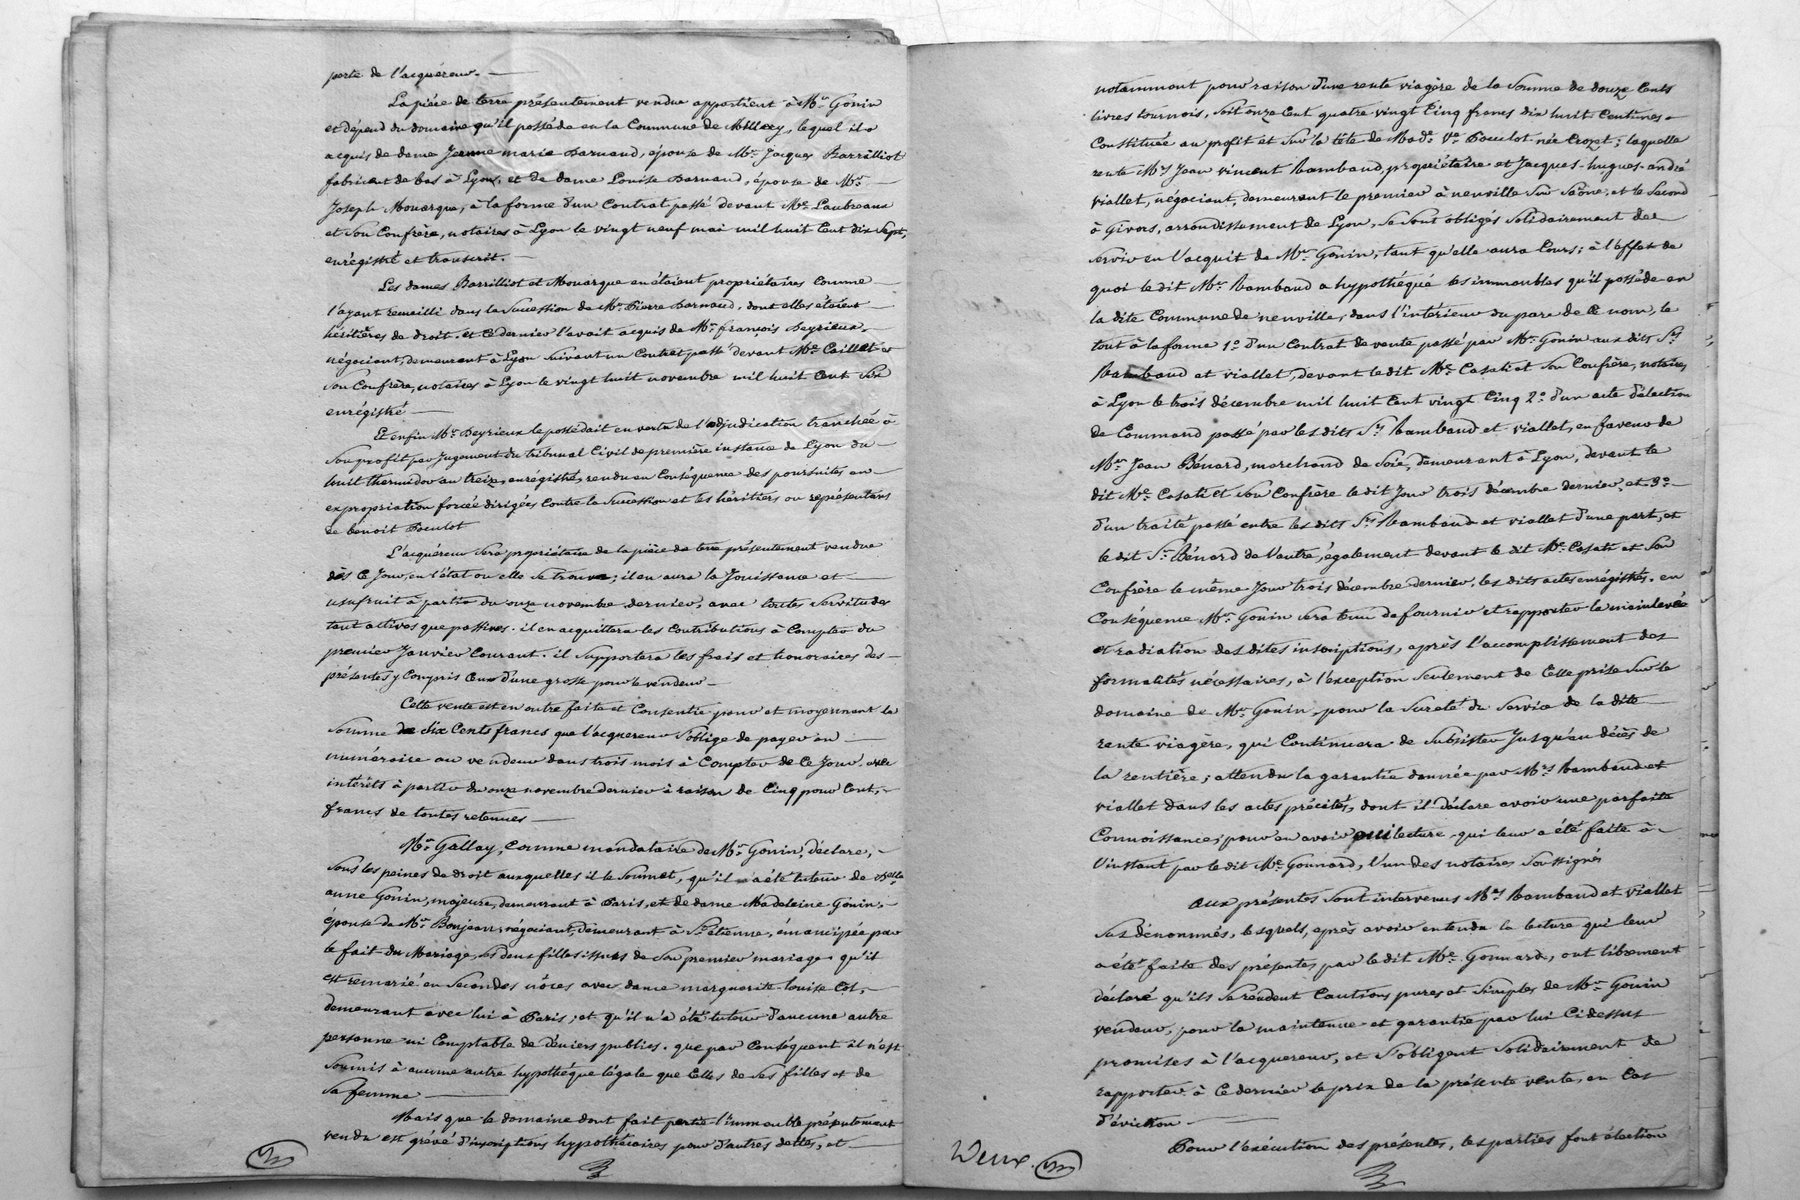 perte de l'acquéreur.
La pièce de terre présentement vendue appartient à Mr. Gonin
et dépend du domaine qu'il possède en la Commune de Millery, lequel il a
acquis de dame Jeanne marie Darnaud, épouse de Mr. Jacques Barrilliot
fabricant de bas à Lyon, et de dame Louise Darnaud, épouse de Mr.
Joseph Mouarque, à la forme d'un Contrat passé devant Me. Laubreaux
et Son Confrère, notaires à Lyon le vingt neuf mai mil huit Cent dix Sept,
enrégistré et transcrit.
Les dames Barrilliot et Mouarque en étaient propriétaires Comme
l'ayant recueilli dans la Succession de Mr. Pierre Darnaud, dont elles étaient
héritières de droit. et Ce dernier l'avait acquis de Mr. françois Peyrieux,
négociant, demeurant à Lyon Suivant un Contrat passé devant Me. Caillat et
Son Confrère, notaires à Lyon le vingt huit novembre mil huit Cent Six
enrégistré
Et enfin Mr. Peyrieux le possédait en vertu de l'adjudication tranchée à
Son profit par Jugement du tribunal Civil de première instance de Lyon du
huit thermidor an treize, enrégistré, rendu en Conséquence des poursuites en
expropriation forcée dirigées Contre la Succession et les héritiers ou représentans
de benoit Poculot
L'acquéreur Sera propriétaire de la pièce de terre présentement vendue
dès Ce Jour, en l'état où elle Se trouve; il en aura la Jouissance et
usufruit à partir du onze novembre dernier, avec toutes Servitudes
tant actives que passives. il en acquittera les Contributions à Compter du
premier Janvier Courant. il Supportera les frais et honoraires des
présentes y Compris Ceux d'une grosse pour le vendeur
Cette vente est en outre faite et Consentie pour et moyennant la
Somme de Six Cents francs que l'acquereur S'oblige de payer en
numéraire au vendeur dans trois mois à Compter de Ce Jour avec
intérêts à partir du onze novembre dernier à raison de Cinq pour Cent,
francs de toutes retenues
Mr. Gallay, Comme mandataire de Mr. Gonin, déclare,
Sous les peines de droit auxquelles il le Soumet, qu'il a été tuteur de Delle.
anne Gonin, majeure, demeurant à Paris, et de dame Madeleine Gonin,
épouse de Mr. Bonjean, négociant, demeurant à St. étienne, émancipée par
le fait du Mariage, Ses deux filles issues de Son premier mariage qu'il
est remarié en Secondes nôces avec dame marguerite Louise Col,
demeurant avec lui à Paris; et qu'il n'a été tuteur d'aucune autre
personne ni Comptable de deniers publics. que par Conséquent il n'est
Soumis à aucune autre hypothèque légale que Celles de Ses filles et de
Sa femme
Mais que le domaine dont fait partie l'immeuble présentement
vendu est grévé d'inscriptions hypothécaires pour d'autres dettes, et
notamment pour raison d'une rente viagère de la Somme de douze Cents
livres tournois, Soit onze Cent quatre vingt Cinq francs dix huit Centimes
Constituée au profit et Sur la tête de Made. Ve. Poculot née Crozet; laquelle
rente Mrs Jean vincent Rambaud, propriétaire et Jacques hugues andré
viallet, négociant, demeurant le premier à neuville Sur Saône, et le Second
à Givors, arrondissement de Lyon, Se Sont obligés Solidairement de
Servir en l'acquit de Mr. Gonin, tant qu'elle aura Cours; à l'effet de
quoi le dit Mr. Rambaud a hypothéqué les immeubles qu'il possède en
la dite Commune de neuville, dans l'intérieur du parc de Ce nom, le
tout à la forme 1o. d'un Contrat de vente passé par Mr. Gonin aux dits Srs
Rambaud et viallet, devant le dit Me. Casati et Son Confrère, notaires,
à Lyon le trois décembre mil huit Cent vingt Cinq 2o. d'un acte d'élection
de Command passé par les dits Srs Rambaud et viallet, en faveur de
Mr. Jean Bénard, marchand de Soie, demeurant à Lyon, devant le
dit Me. Casati et Son Confrère le dit Jour trois décembre dernier, et 3o.
d'un traité passé entre les dits Srs Rambaud et viallet d'une part, et
le dit Sr. Bénard de l'autre, également devant le dit Me. Casati et Son
Confrère le même Jour trois décembre dernier, les dits actes enrégistrés. en
Conséquence Mr. Gonin Sera tenu de fournir et rapporter la mainlevée
et radiation des dites inscriptions, après l'accomplissement des
formalités nécessaires, à l'exception Seulement de Celle prise Sur le
domaine de Mr. Gonin, pour la Sureté du Service de la dite
rente viagère, qui Continuera de Subsister Jusqu'au décès de
la rentière; attendu la garantie donnée par Mrs Rambaud et
viallet dans les actes précités, dont il déclare avoir une parfaite
Connoissance, pour en avoir oui lecture qui leur a été faite à
l'instant par le dit Me. Gonnard, l'un des notaires Soussignés
aux présentes Sont intervenus Mrs Rambaud et viallet
Sus dénommés, lesquels, après avoir entendu la lecture qui leur
a été faite des présentes, par le dit Me. Gonnard, ont librement
déclaré qu'ils Se rendent Cautions pures et Simples de Mr. Gonin
vendeur, pour la maintenue et garantie par lui Cidessus
promises à l'acquereur, et S'obligent Solidairement de
rapporter à Ce dernier le prix de la présente vente, en Cas
d'éviction
Pour l'exécution des présentes, les parties font élection
Deux.